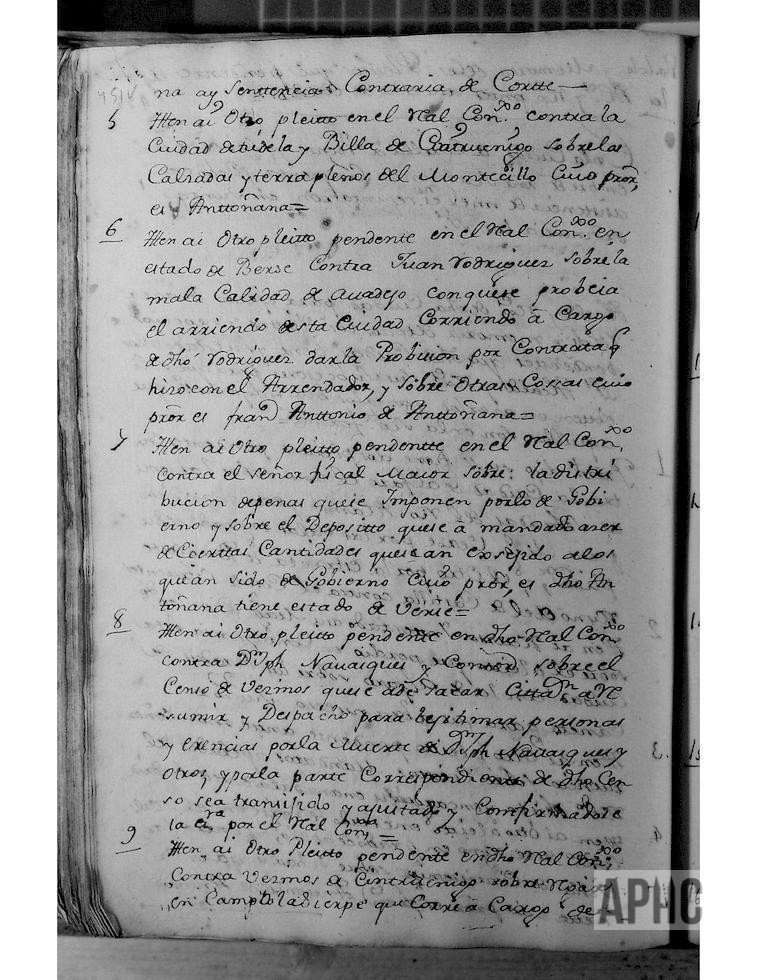 na ay Senttencias Contraria, de Cortte
5 Itten ai Otro pleitto en el Rl Conxo contra la
Ciudad de tudela y Billa de Cintruenigo sobre las
Calzadas y terra plenos del Montecillo Cuio pror,
es Anttoñana=
6 Itten ai Otro pleitto pendente en el Rl Conxo en
estado de Berse Contra Juan Rodriguez sobre la
mala Calidad de avadejo con que se probeia
el arriendo de sta Ciudad, Corriendo â Cargo
de dho Rodriguez dar la Probision por Contrata q
hizo con el Arrendador, y sobre Otras Cosas cuio
pror es fran Anttonio de Anttoñana=
7 Itten ai Otro pleitto pendentte en el Rl Conxo
Contra el señor fiscal Maior sobre: la distri
bucion de penas que se Imponen por lo de Gobi
erno y sobre el Depositto que se a mandado azer
de Cierttas Cantidades que se an exsejido a los
que an sido de Gobierno Cuio pror, es dho An
toñana tiene estado de Verse=
8 Itten ai Otro pleitto pendente en dho Rl Conxo
contra Dn Jph Navasques y Consord sobre el
Censo de Vezinos que se a de sacar
sumir y Despacho para lejitimar personas
y erencias por la Muerte de Dn Jph Navasques y
Otros, y por la parte Correspondiente de dho Cen
so sea transijido y ajustado y Comfirmadose
la por el Rl Conxo =
9 Itten ai Otro Pleitto pendente en dho Rl Conxo
Contra Vezinos de Cintruenigo sobre
en Campo la sierpe que Corre â Cargo de
APHC